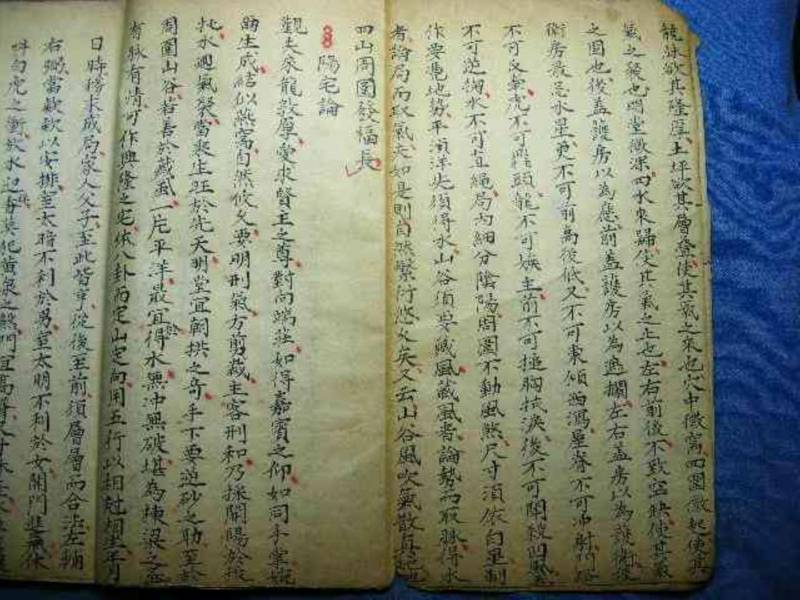 龍脉欲其隆厚土坪欲其層叠使其氣之來也穴中微窩四圍微起使其
氣之聚也明堂微深四水來歸使其氣之止也左右前後不致空缺使其氣
之固也後盖護房以為應前盖護房以為遮攔左右盖房以為護衛後
衛房最忌水星更不可前高後低又不可東傾西瀉星脊不可冲射門路
不可反弓虎不可昂頭龍不可嫉主前不可搥胸拭淚後不可開窺凹風
不可逆掬水不可直繩局內細分陰陽周圍不動風煞尺寸須依白星制
作要憑地勢平洋先須得水山谷須要藏風藏風者論勢而取脉得水
者論局而取氣夫如是則自然繁衍悠久矣又云山谷風吹氣散
四山周圍發福長
陽宅論
觀夫來龍敦厚愛求賢主之尊對向端莊如得嘉賓之仰如同手掌
生成結似燕窩自然悠久要明刑氣方剪裁主客刑和乃採開陽於
水廻氣聚當乘生旺於先天明堂宜朝拱之奇手下要逆砂之助至於
周圍山谷皆善於藏風一片平洋最宜得水無冲無破堪為棟梁之
有脉有情可作興隆之宅依八卦而定山定向用五行以相尅相生
日時擇來成局家人父子至此皆亨從後至前須層層而合法左輔
右弼當欵欵以安排室太暗不利於男室太明不利於女開門進
白虎之衝放水迎 莫犯黃泉之煞門宜高